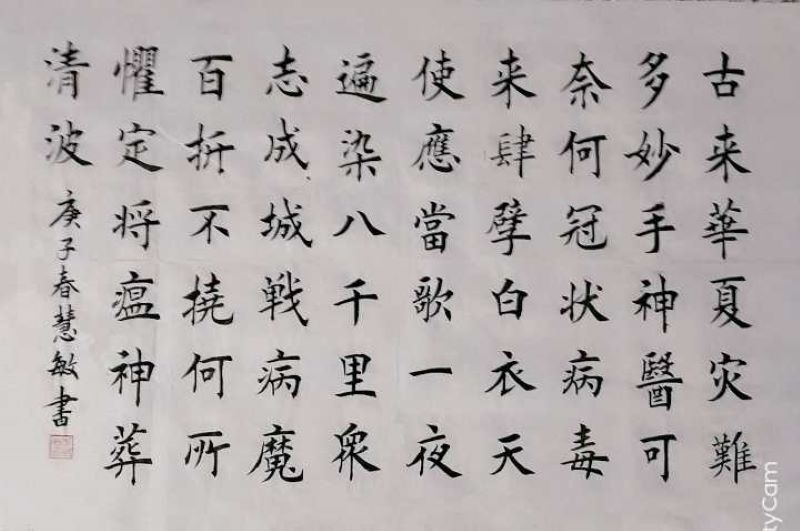 古来華夏灾難
多妙手神醫可
奈何冠状病毒
来肆孽白衣天
使應當歌一夜
遍染八千里眾
志成城戦病魔
百折不撓何所
懼定将瘟神葬
清波
庚子春慧敏書
tyCam